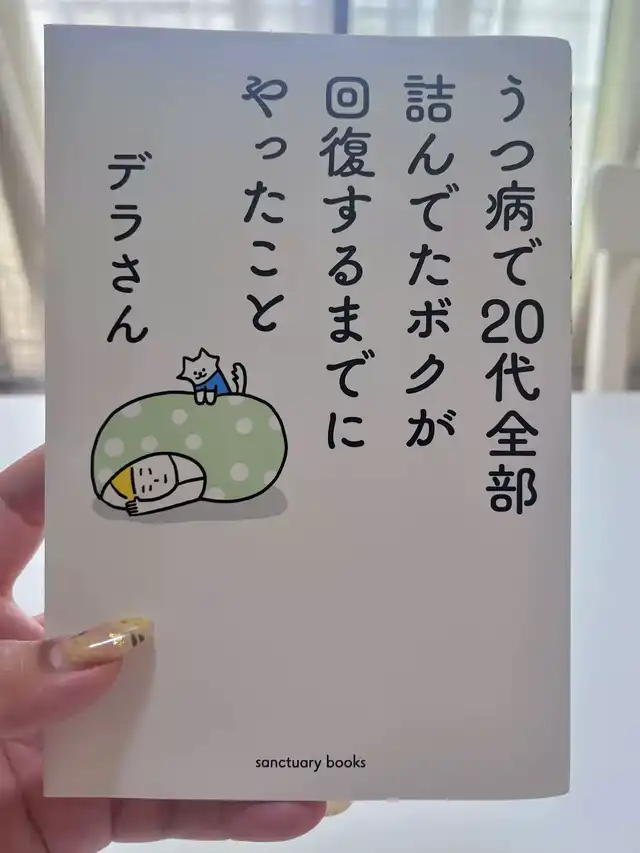 うつ病で20代全部
詰んでたボクが
回復するまでに
やったこと
デラさん
sanctuary books